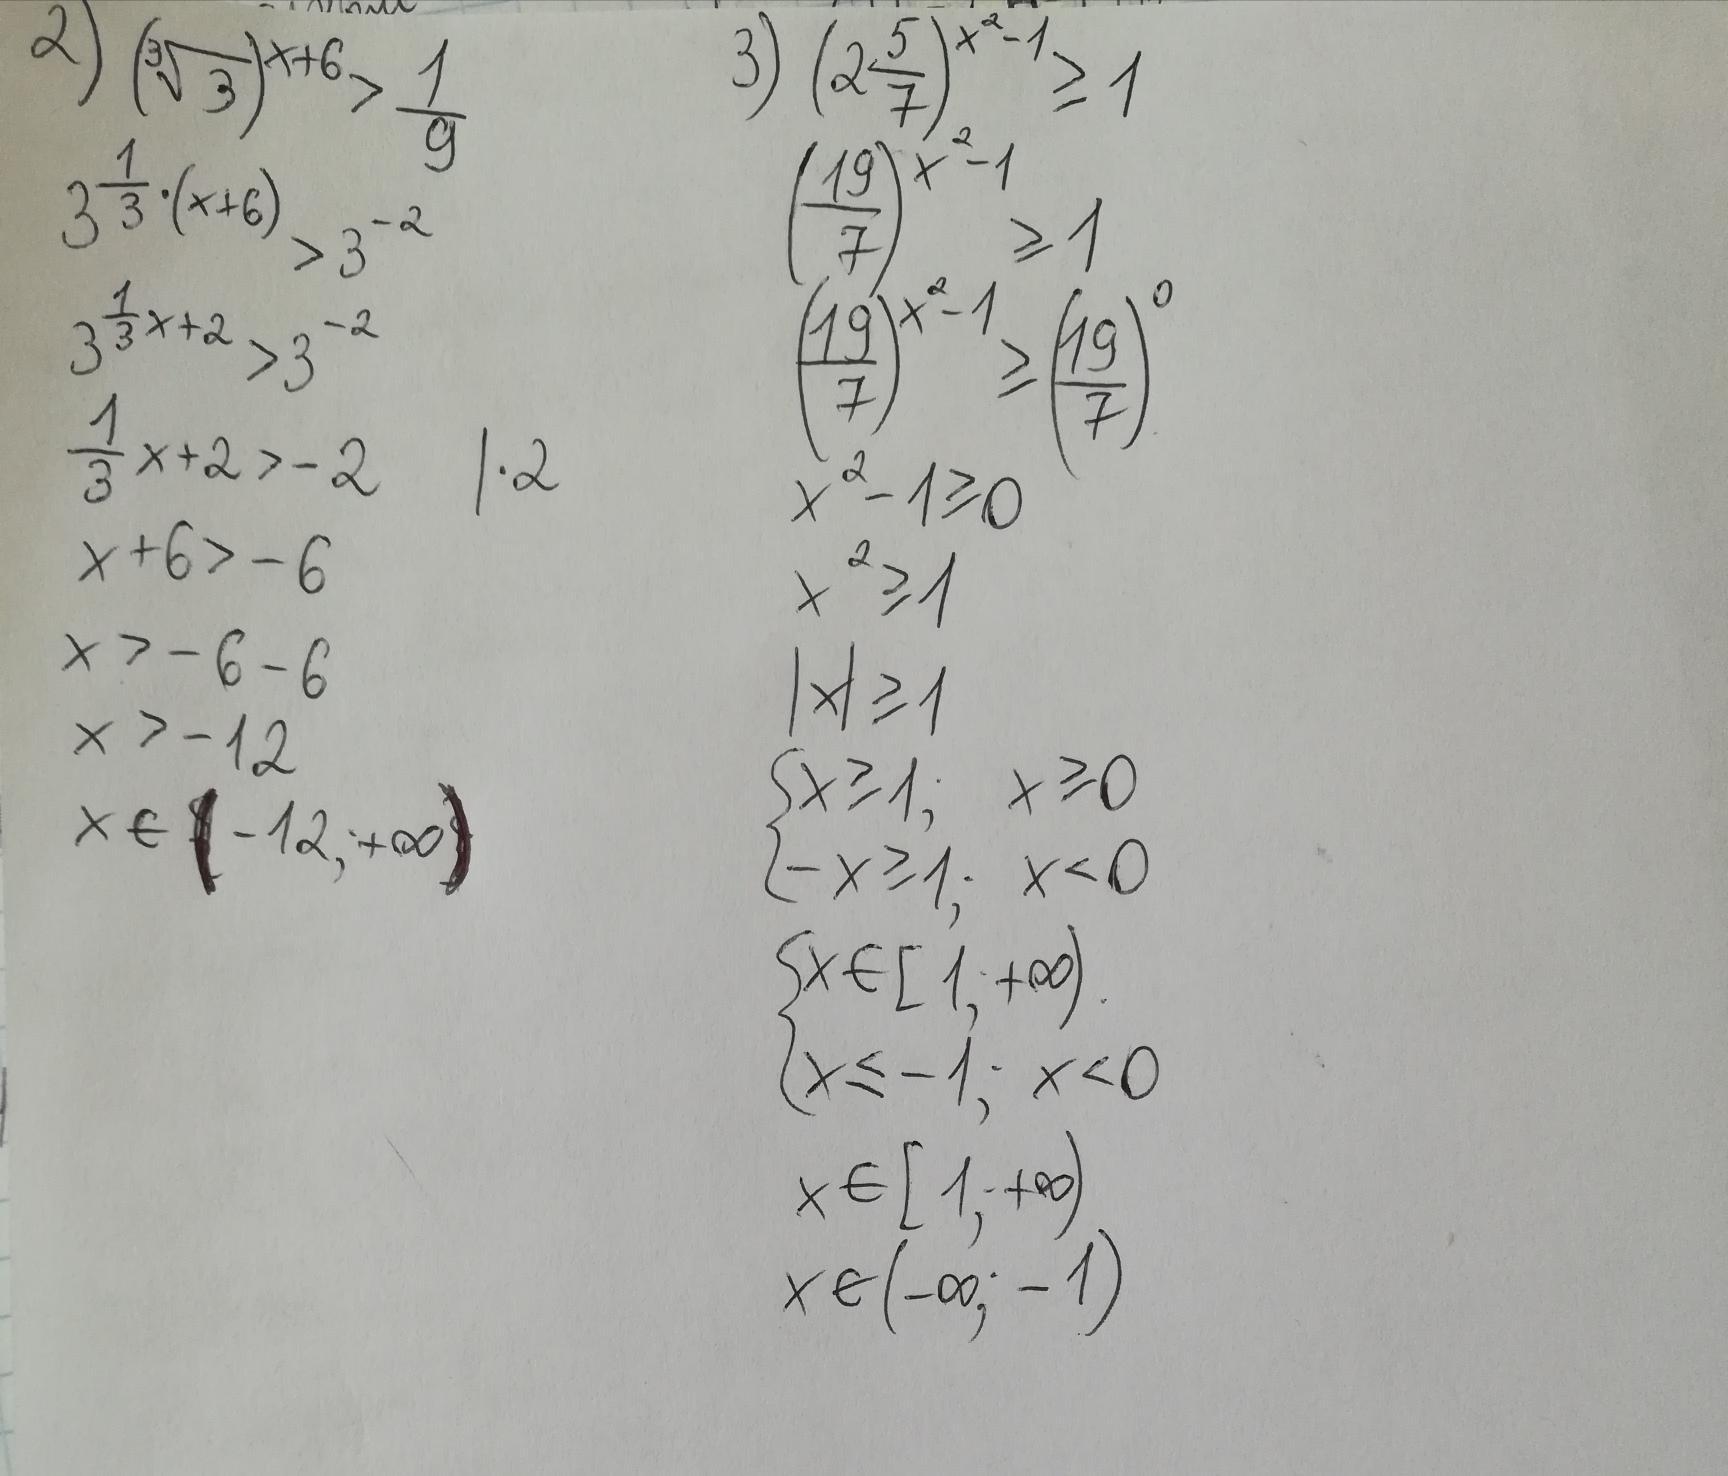 2) (∛3)^(x+6) > 1/9
3^(1/3·(x+6)) > 3^(-2)
3^(1/3x+2) > 3^(-2)
1/3x+2>-2 |·2
x+6>-6
x>-6-6
x>-12
x∈(-12;+∞)
3) (2 5/7)^(x²-1) ≥ 1
(19/7)^(x²-1) ≥ 1
(19/7)^(x²-1) ≥ (19/7)^0
x²-1≥0
x²≥1
|x|≥1
{x≥1; x≥0
{-x≥1; x<0
{x∈[1;+∞).
{x≤-1; x<0
x∈[1;+∞)
x∈(-∞;-1)